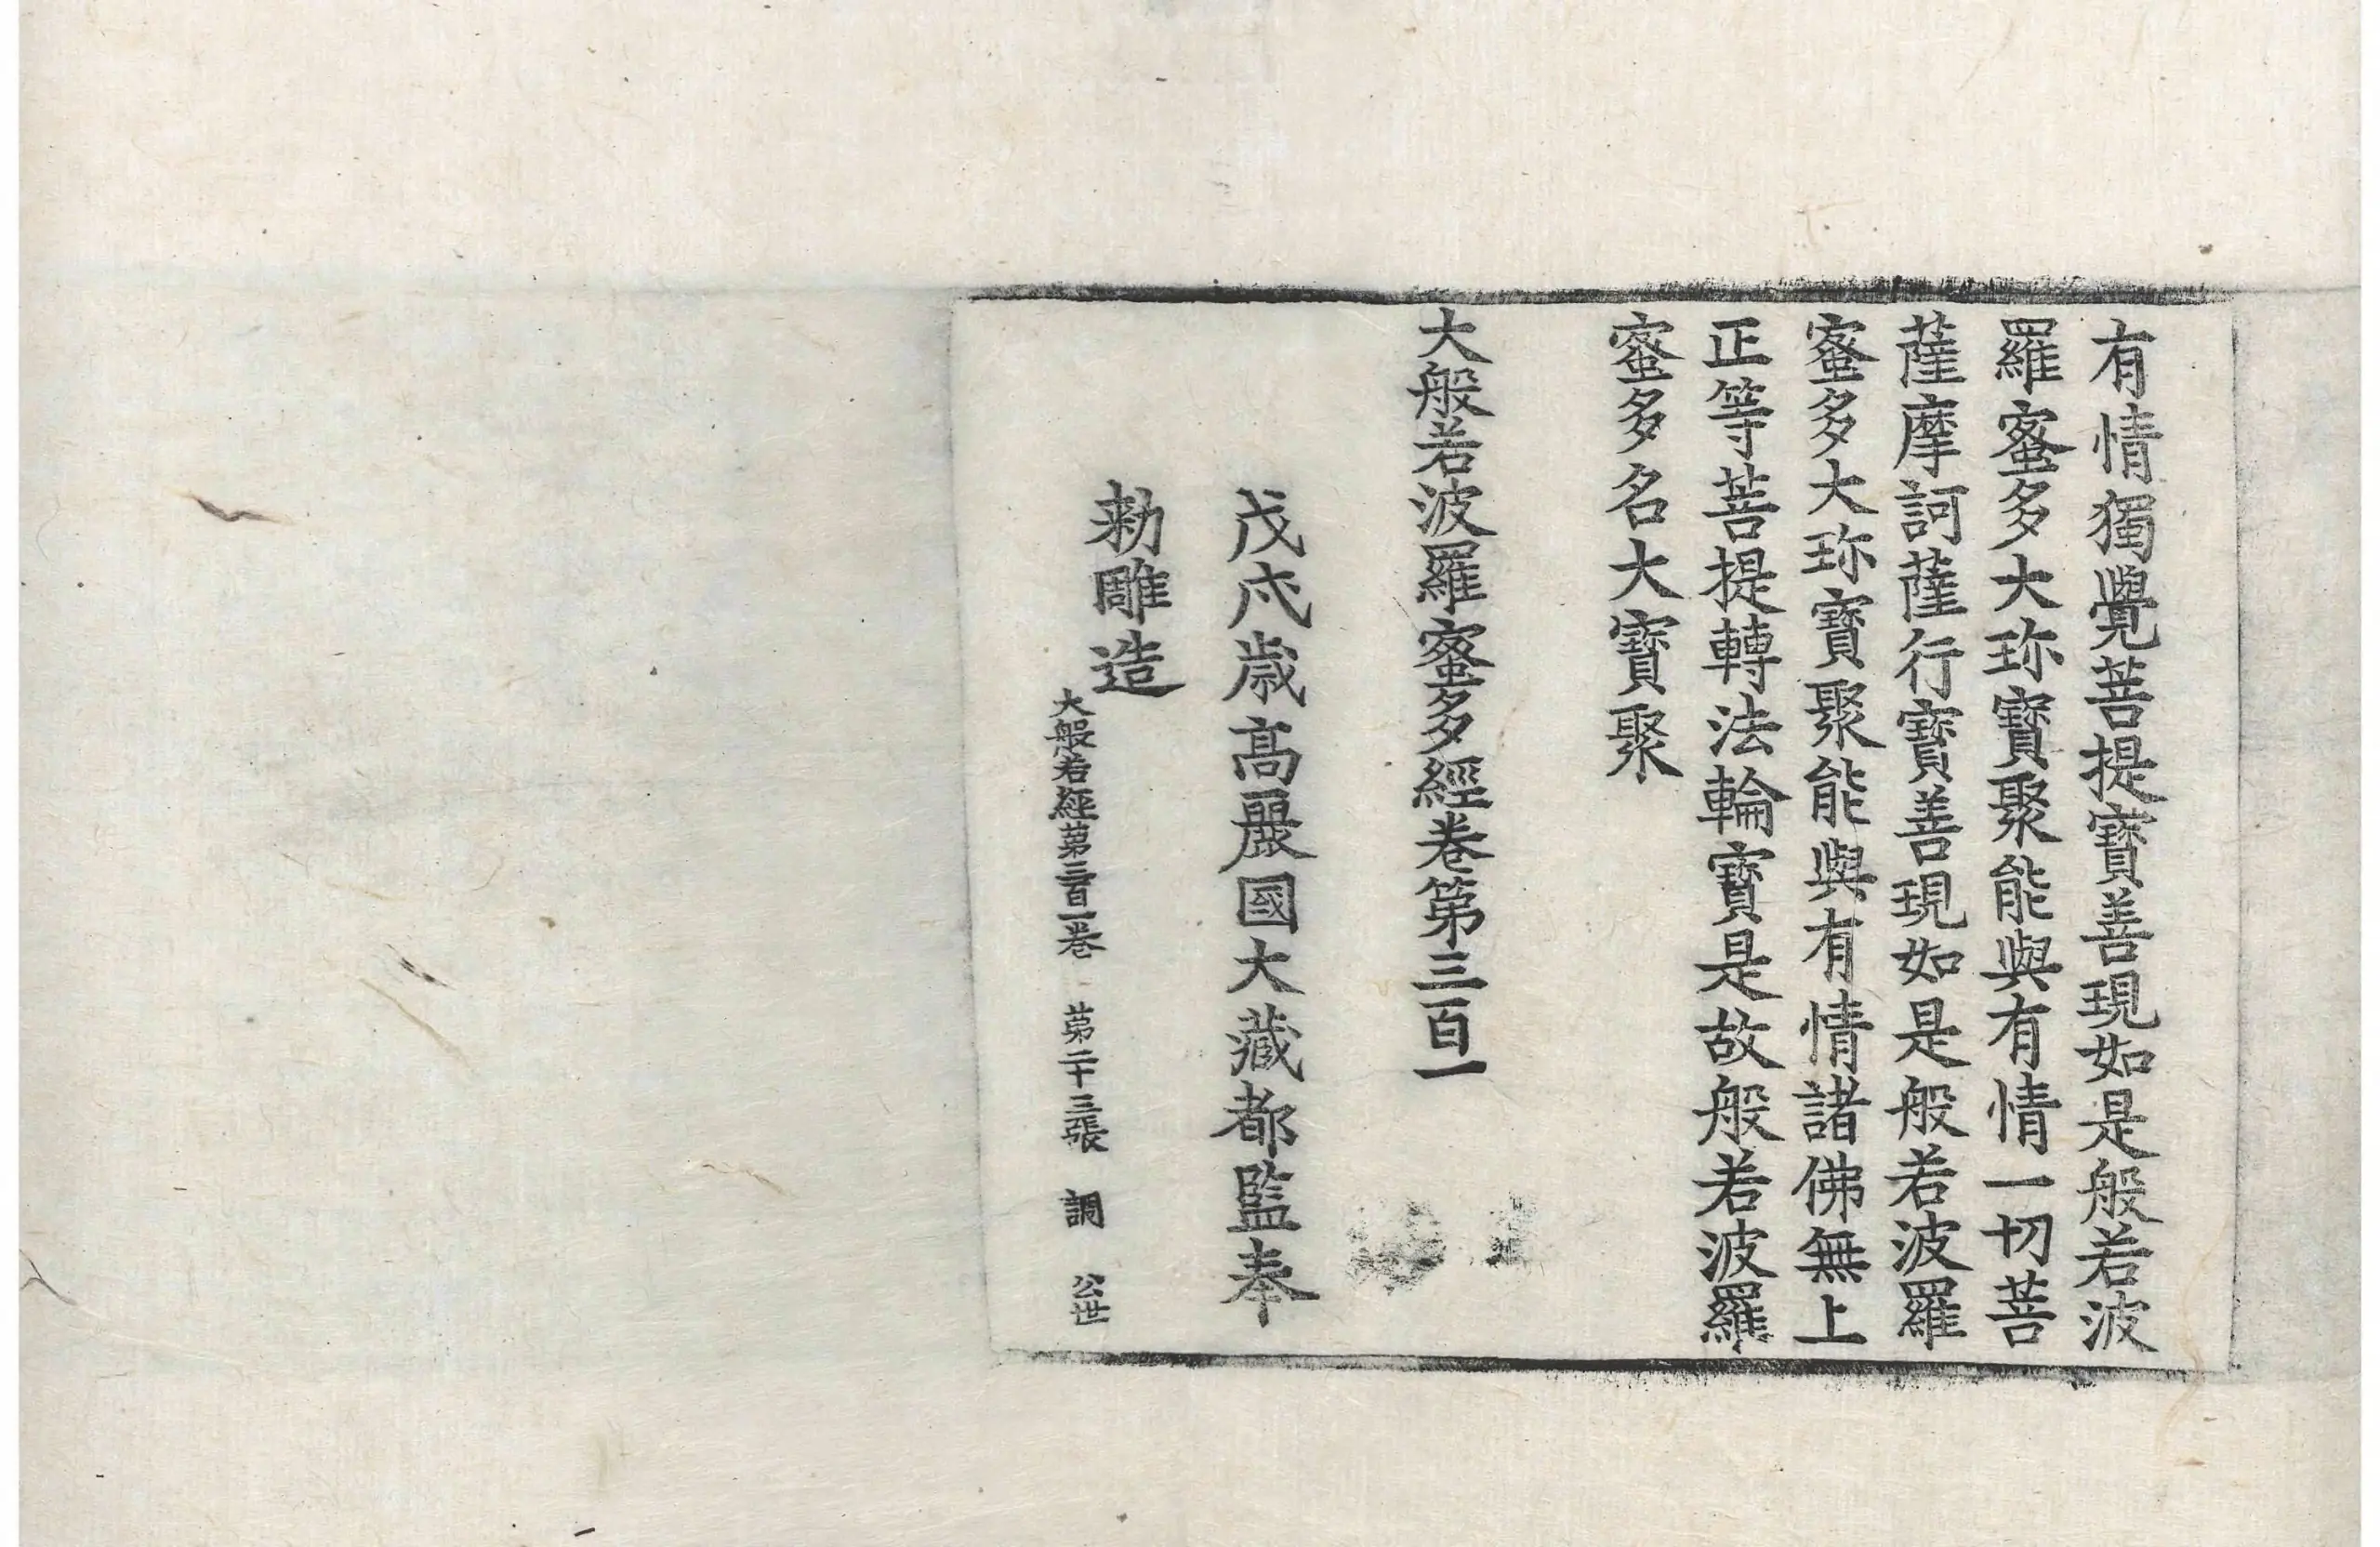 有情獨覺菩提寶善現如是般若波
羅蜜多大珎寶聚能與有情一切菩
薩摩訶薩行寶善現如是般若波羅
蜜多大珎寶聚能與有情諸佛無上
正等菩提轉法輪寶是故般若波羅
蜜多名大寶聚
大般若波羅蜜多經卷第三百一
戊戌歲高麗國大藏都監奉
勑雕造
大般若經第三百一卷 第二十三張 調 公世